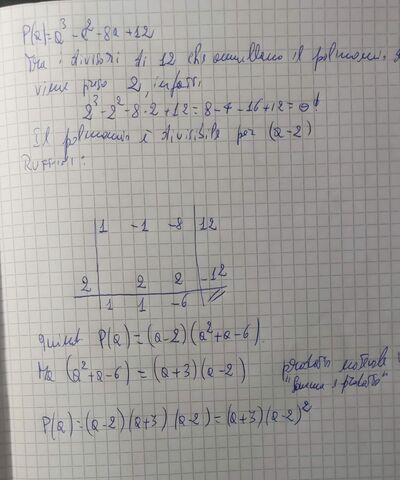 P(a)=a³-a²-8a+12
Tra i divisori di 12 che annullano il polinomio
viene preso 2, infatti
2³-2²-8·2+12=8-4-16+12=0!
Il polinomio è divisibile per (a-2)
Ruffini:
1 -1 -8 12
2 2 2 -12
1 1 -6 //
quindi P(a)=(a-2)(a²+a-6)
Ma (a²+a-6)=(a+3)(a-2) prodotto notevole
"somma e prodotto"
P(a)=(a-2)(a+3)(a-2)=(a+3)(a-2)²